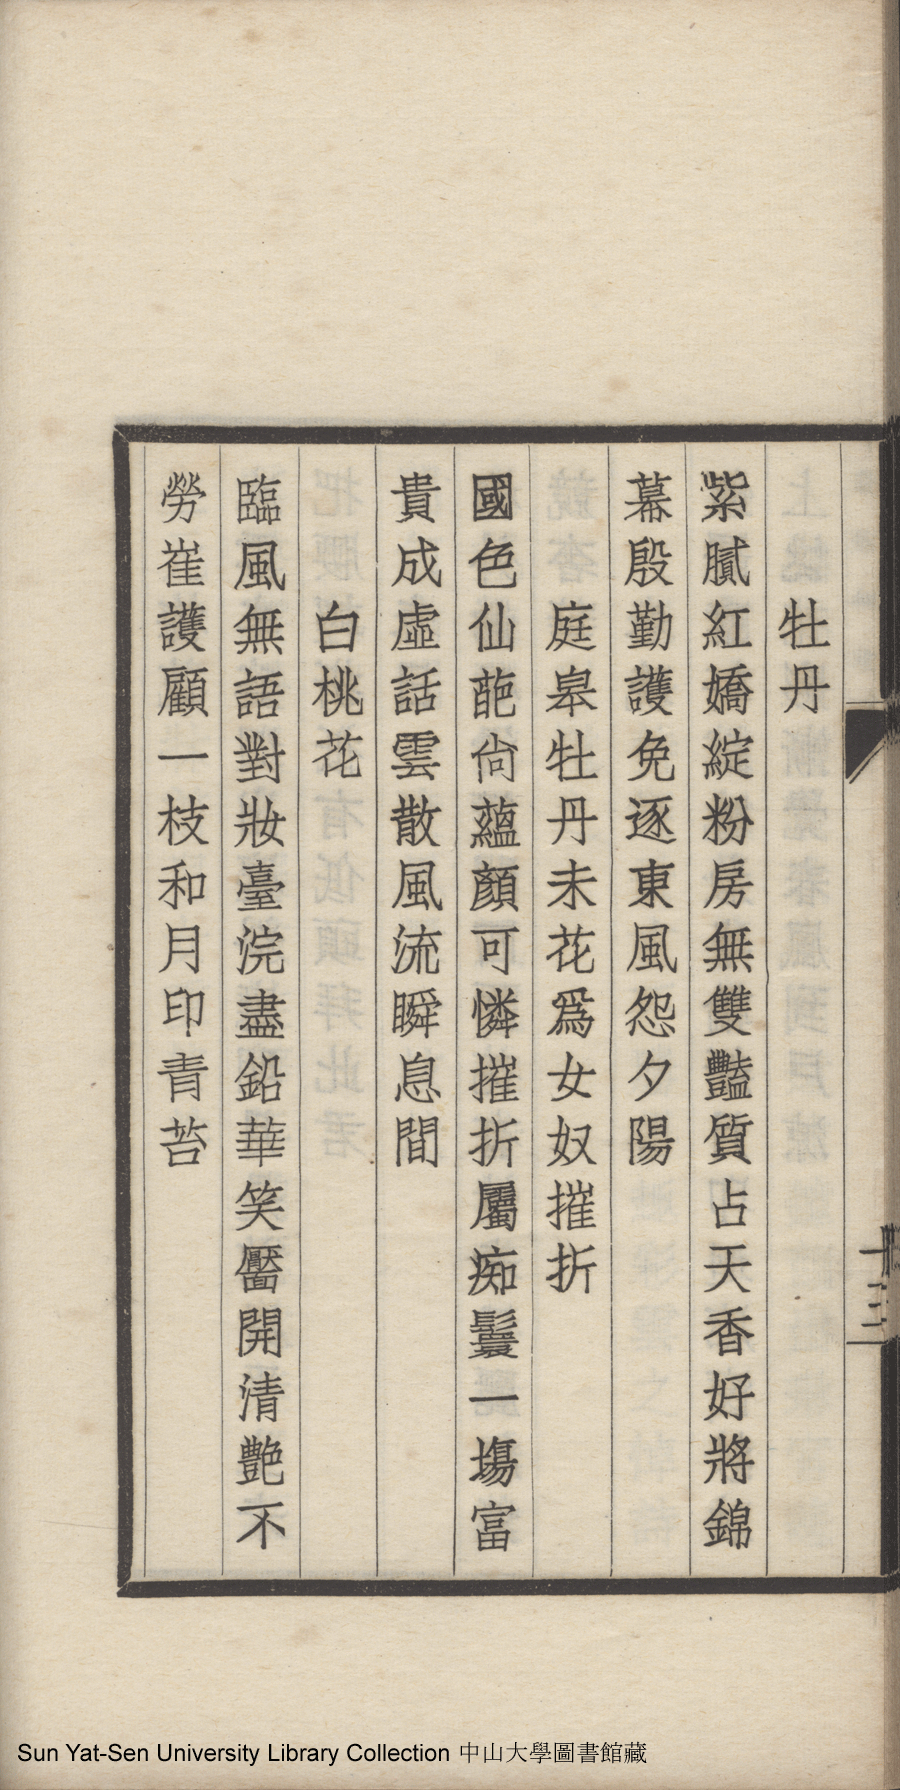 牡丹
紫膩紅嬌綻粉房無雙豔質占天香好將錦
幕殷勤護免逐東風怨夕陽
庭皋牡丹未花爲女奴摧折
國色仙葩尙蘊顏可憐摧折屬痴鬟一塲富
貴成虛話雲散風流瞬息間
白桃花
臨風無語對妝臺浣盡鉛華笑靨開清艷不
勞崔護顧一枝和月印青苔
十三
Sun Yat-Sen University Library Collection 中山大學圖書館藏